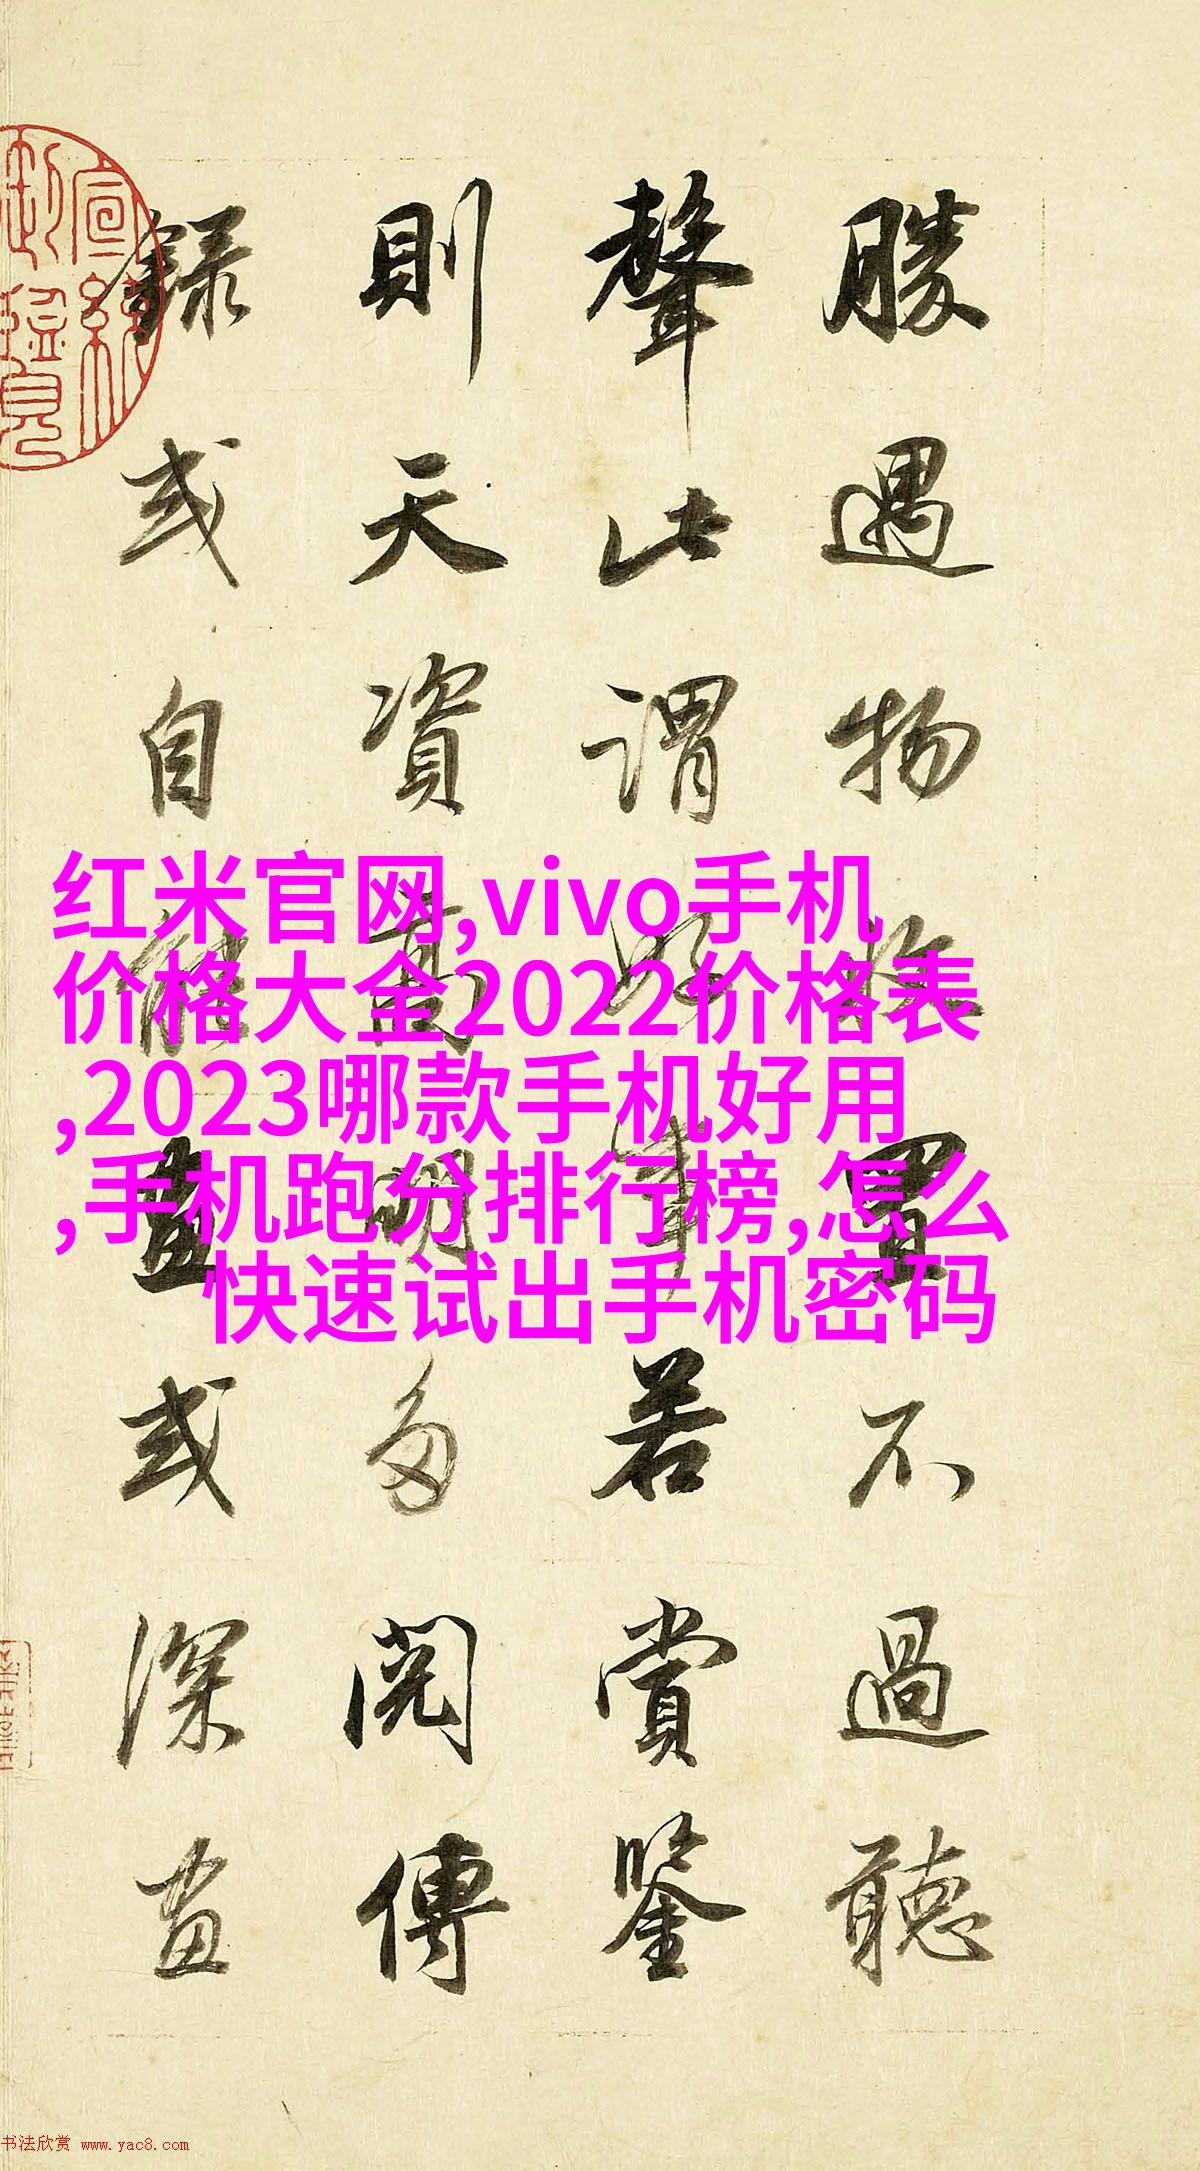 勝遇物收置不過聽
聲此謂好事若賞鑒
則天資高明多閱傳
錄或自能畫或深畫
红米官网,vivo手机
价格大全2022价格表
,2023哪款手机好用
,手机跑分排行榜,怎么
快速试出手机密码
书法欣赏 www.yac8.com